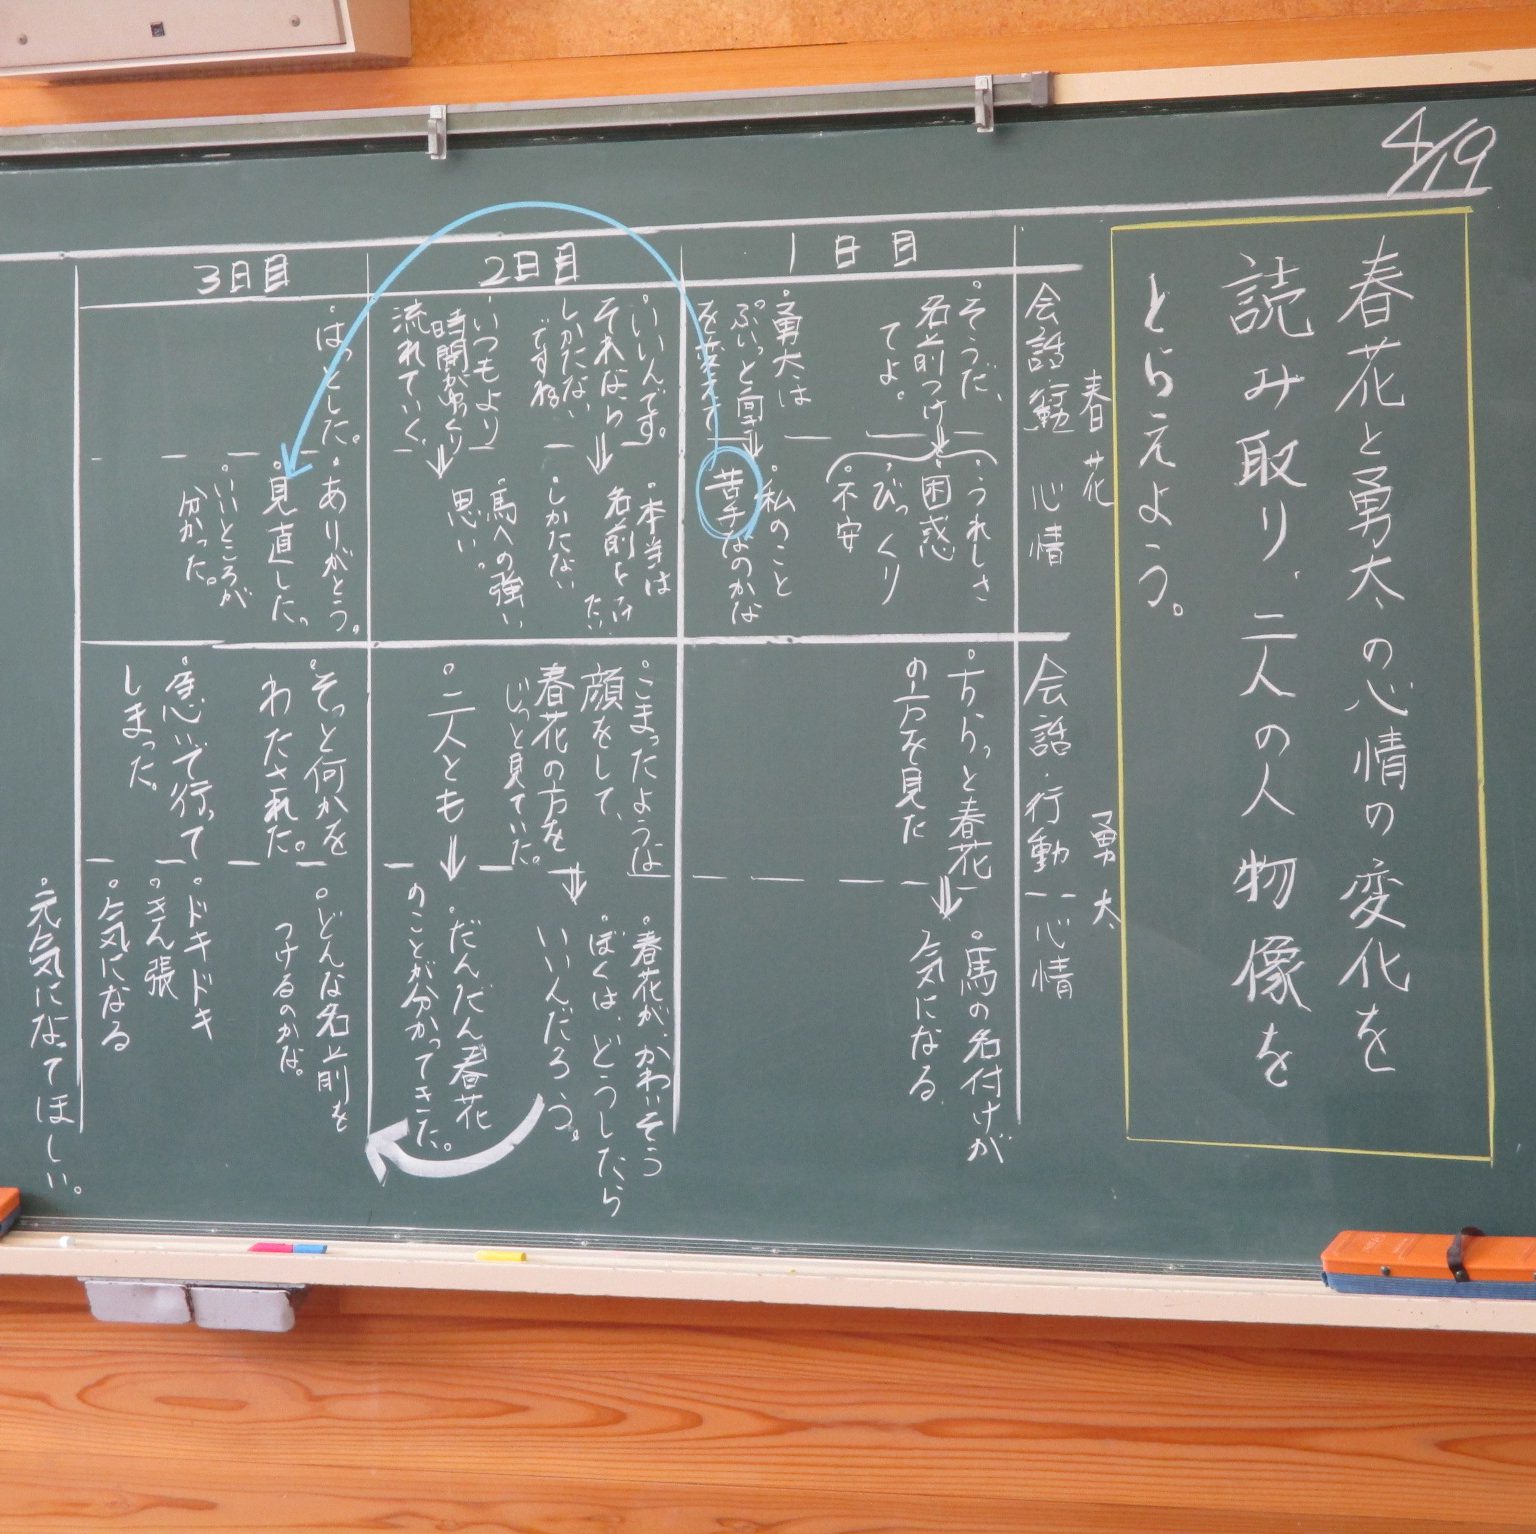 4/19
春花と勇太の心情の変化を
読み取り、二人の人物像を
とらえよう。
春花
勇太
会話・行動
心情
会話・行動
心情
1日目
・そうだ、
名前つけ
てよ。
・勇太は
ぷいっと向き
を変えて
・うれしさ
・困惑
・びっくり
・不安
・私のこと
苦手なのかな
・ちらっと春花
の方を見た
・馬の名付けが
気になる
2日目
・いいんです。
それなら
しかたない
ですね
・いつもより
時間がゆっくり
流れていく。
・本当は
名前よびたい
・しかたない
・馬への強い
思い。
・こまったような
顔をして、
春花の方を
じっと見ていた。
・二人とも
・春花が、かわいそう
・ぼくは、どうしたら
いいんだろう。
・だんだん春花
のことが分かってきた。
3日目
・はっとした。
・ありがとう。
・見直した。
・いいところが
分かった。
・そっと何かを
わたされた。
・急いで行って
しまった。
・どんな名前を
つけるのかな。
・ドキドキ
・きん張
・気になる
・元気になってほしい。